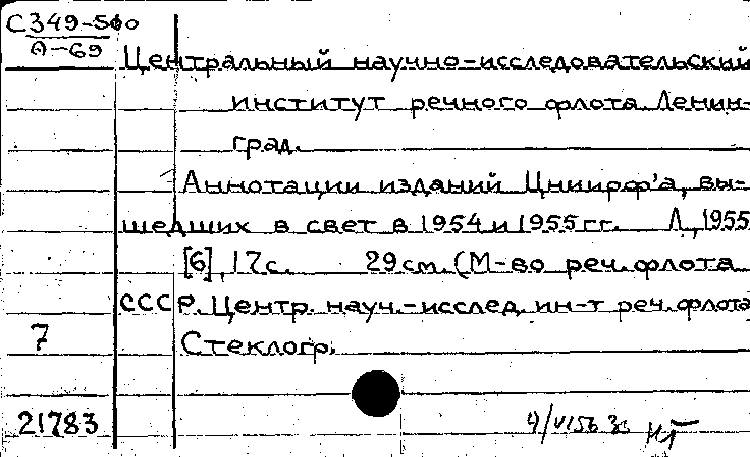 С349-500
А-69
Центральный научно-исследовательский
институт речного флота Ленин-
град.
Аннотации изданий Цниирф'а, вы-
шедших в свет в 1954 и 1955 гг. Л, 1955
[6], 17с. 29 см. (М-во реч. флота
СССР. Центр. науч.-исслед. ин-т реч. флота
7 Стеклогр.
21783